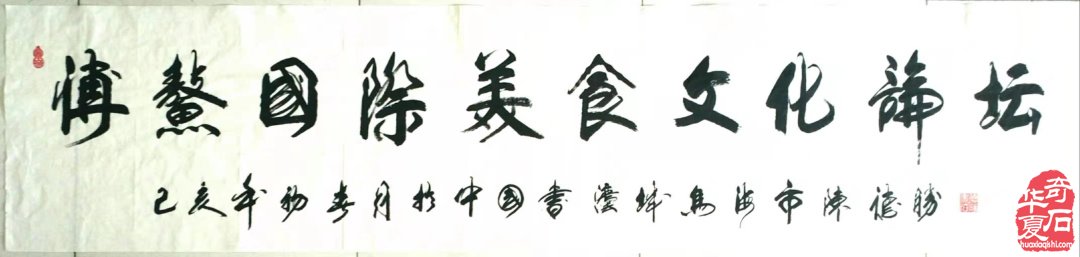 博鰲國際美食文化論坛
己亥年初春月於中国書灋城烏海市陳德勝
华夏奇石
huaxiaqishi.com